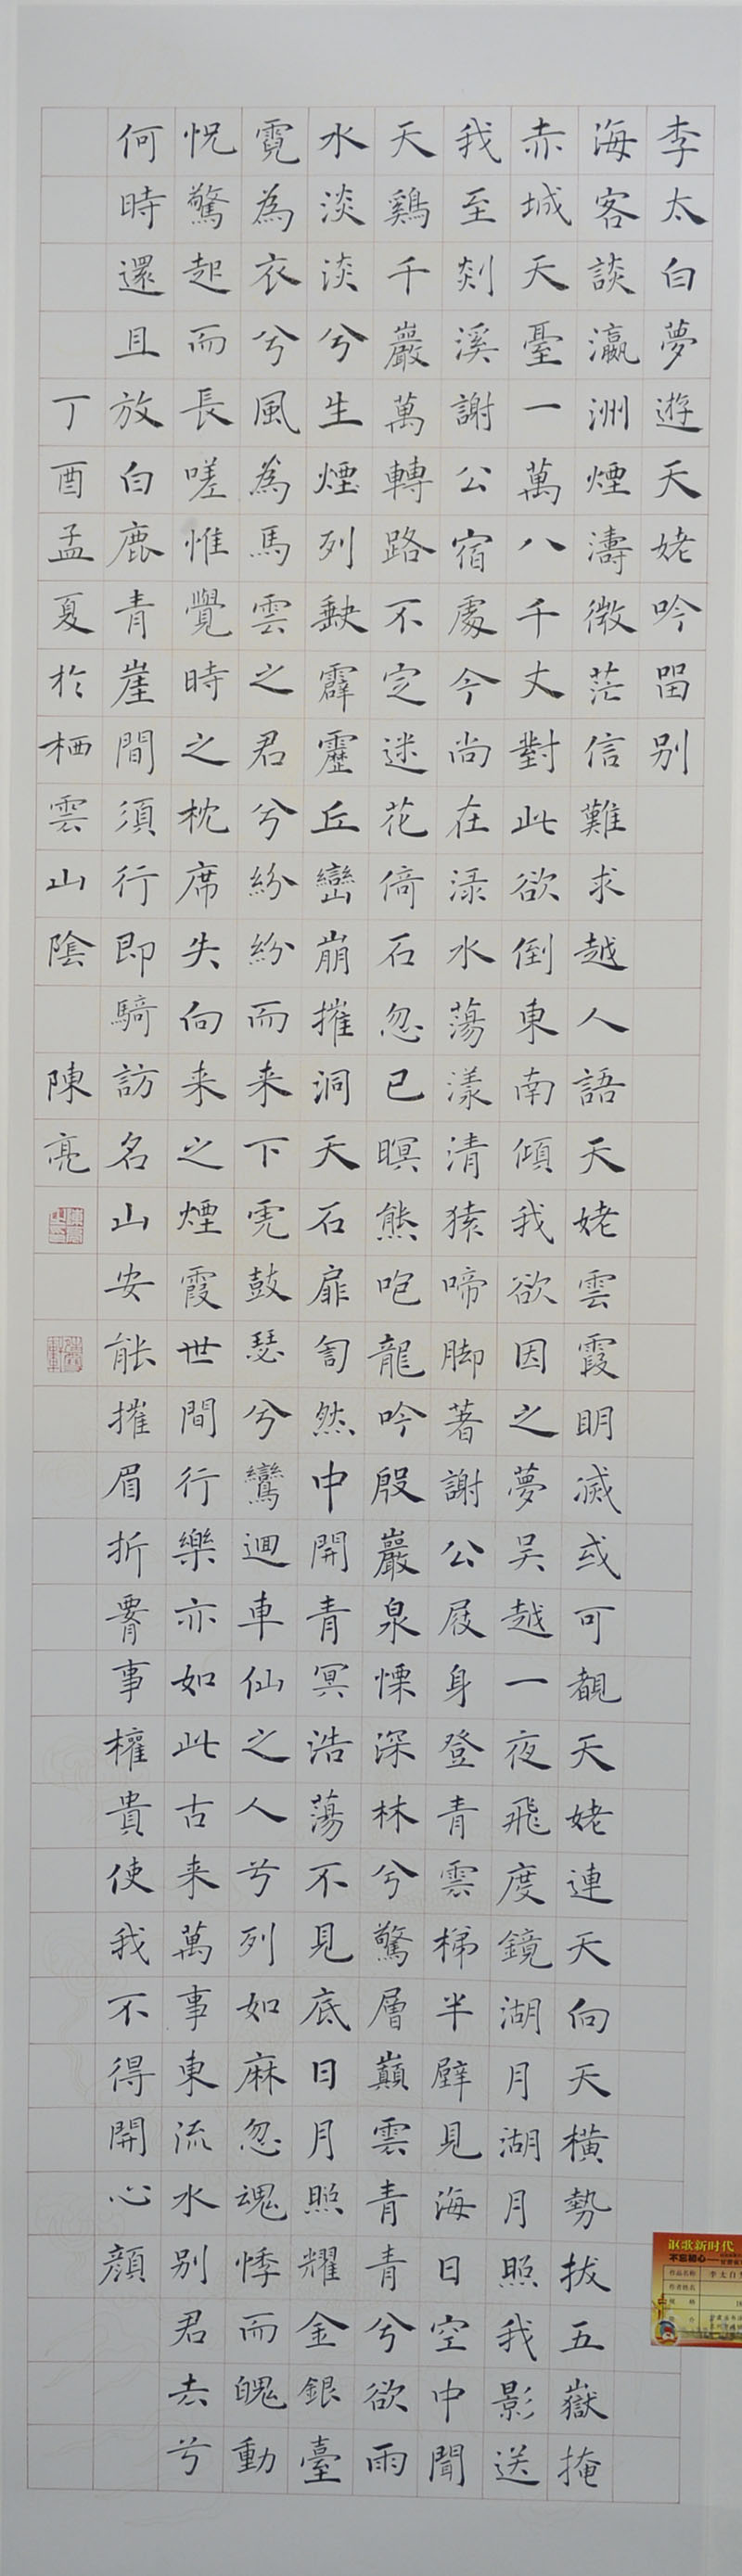 李太白夢遊天姥吟留别
海客談瀛洲煙濤微茫信難求越人語天姥雲霞明滅或可覩天姥連天向天橫勢拔五嶽掩
赤城天臺一萬八千丈對此欲倒東南傾我欲因之夢吴越一夜飛度鏡湖月湖月照我影送
我至剡溪謝公宿處今尚在渌水蕩漾清猿啼脚著謝公屐身登青雲梯半壁見海日空中聞
天鷄千巖萬轉路不定迷花倚石忽已暝熊咆龍吟殷巖泉慄深林兮驚層巔雲青青兮欲雨
水淡淡兮生煙列缺霹靂丘巒崩摧洞天石扉訇然中開青冥浩蕩不見底日月照耀金銀臺
霓為衣兮風為馬雲之君兮紛紛而来下虎鼓瑟兮鸞迴車仙之人兮列如麻忽魂悸而魄動
怳驚起而長嗟惟覺時之枕席失向来之煙霞世間行樂亦如此古来萬事東流水别君去兮
何時還且放白鹿青崖間須行即騎訪名山安能摧眉折腰事權貴使我不得開心顏
丁酉孟夏於栖雲山陰 陳亮
讴歌新时代
不忘初心——
作品名称 李太白
作者姓名